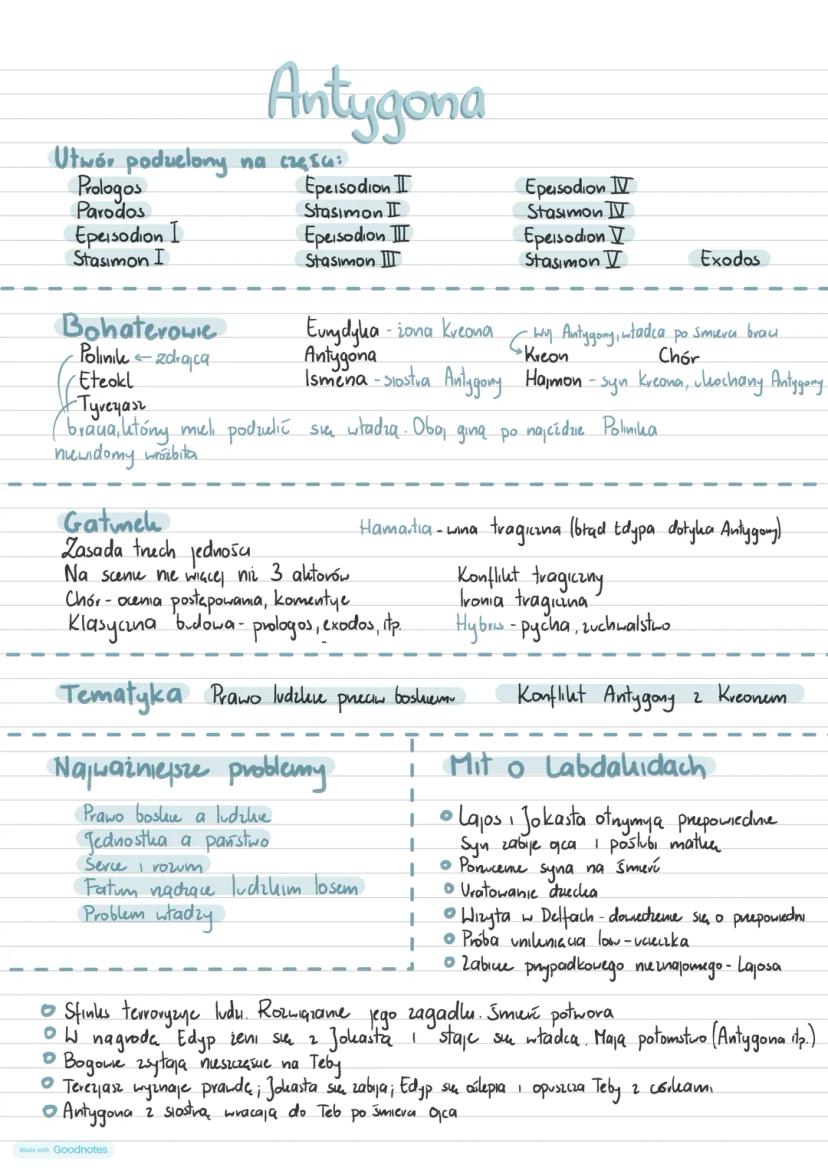 Antygona
Utwór podzielony na części:
Prologos
Parodos
Epeisodion I
Stasimon I
Epeisodion II
Stasimon II
Epeisodion III
Stasimon III
Epeisodion IV
Stasimon IV
Epeisodion V
Stasimon V
Exodos
Bohaterowie
Polinik ← zdrajca
Eteokl
Tyrezjasz
bracia, którzy mieli podzielić się władzą. Obaj giną po najeździe Polinika
niewidomy wróżbita
Eurydyka - żona Kreona
Antygona
Ismena - siostra Antygony
wuj Antygony, władca po śmierci braci
Kreon
Chór
Hajmon - syn Kreona, ukochany Antygony
Gatunek
Zasada trzech jedności
Na scenie nie więcej niż 3 aktorów
Chór - ocenia postępowania, komentuje
Klasyczna budowa - prologos, exodos, itp.
Hamartia - wina tragiczna (błąd Edypa dotyka Antygony)
Konflikt tragiczny
Ironia tragiczna
Hybris - pycha, zuchwalstwo
Tematyka Prawo ludzkie przeciw boskiemu Konflikt Antygony z Kreonem
Najważniejsze problemy
Prawo boskie a ludzkie
Jednostka a państwo
Serce i rozum
Fatum rządzące ludzkim losem
Problem władzy
Mit o Labdakidach
Lajos i Jokasta otrzymują przepowiednie
Syn zabije ojca i poślubi matkę
Porzucenie syna na śmierć
Uratowanie dziecka
Wizyta w Delfach - dowiedzenie się o przepowiedni
Próba uniknięcia losu - ucieczka
Zabicie przypadkowego nieznajomego - Lajosa
Sfinks terroryzuje ludu. Rozwiązanie jego zagadki. Śmierć potwora
W nagrodę Edyp żeni się z Jokastą i staje się władcą. Mają potomstwo (Antygona itp.)
Bogowie zsyłają nieszczęście na Teby
Terezjasz wyznaje prawdę; Jokasta się zabija; Edyp się oślepia i opuszcza Teby z córkami
Antygona z siostrą wracają do Teb po śmierci ojca
Made with Goodnotes